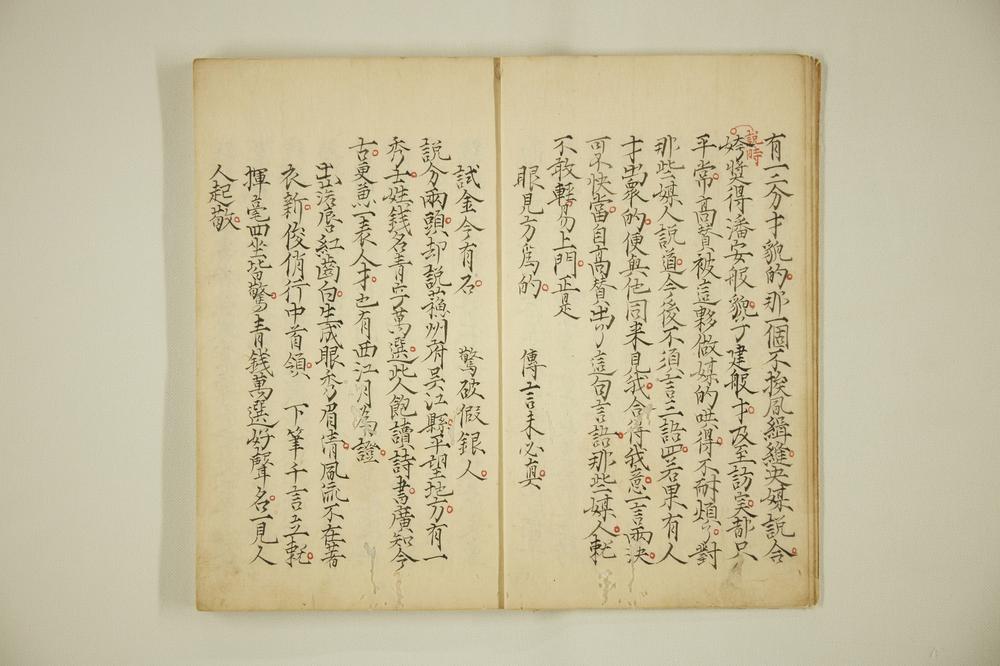 有一二分才貌的那一個不挨風緝縫央媒說合
說時
誇獎得潘安般貌子建般才及至訪实都只
平常高贊被這夥做媒的哄得不耐煩了對
那些媒人說道今後不須言三語四若果有人
才出眾的便與他同来見我合得我意一言兩決
可不快當自高贊出了這句言語那些媒人輒
不敢輕易上門正是
眼見方為的　傳言未必真
試金今有石　驚破假銀人
說分兩頭却說蘓州府吳江縣平望地方有一
秀士姓錢名青字萬選此人飽讀詩書廣知今
古更兼一表人才也有西江月為證
出落唇紅齒白生成眼秀眉清風流不在著
衣新俊俏行中首領　下筆千言立就
揮毫四坐皆驚青錢萬選好聲名一見人
人起敬